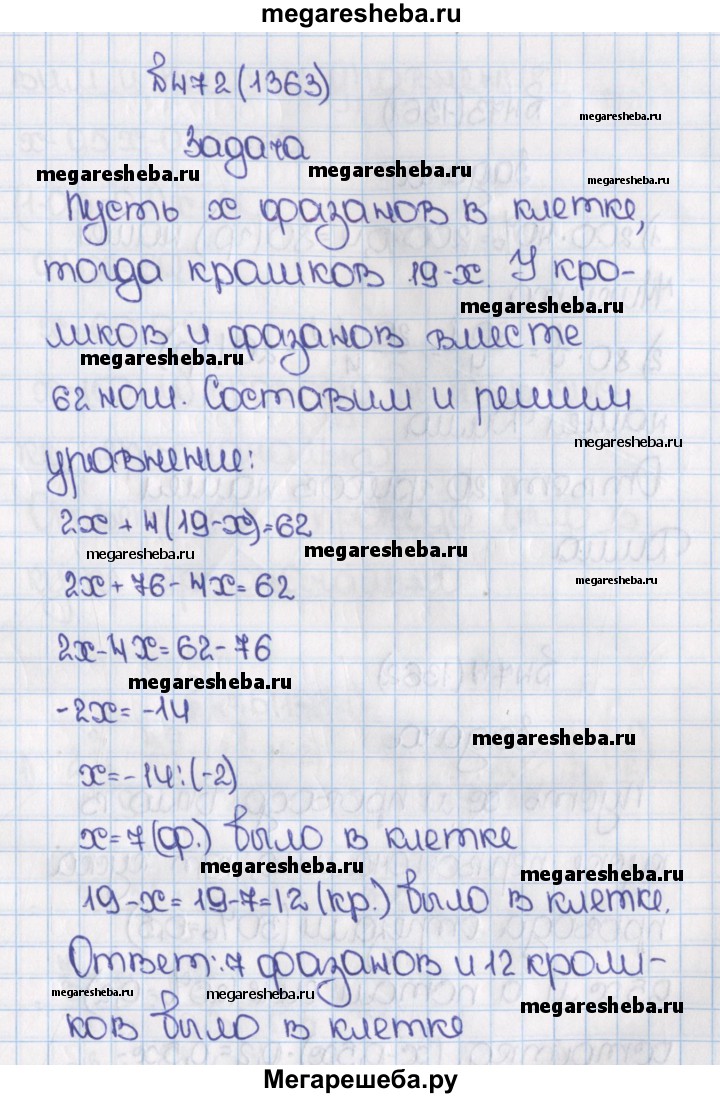 megaresheba.ru
№472(1363)
megaresheba.ru
Задача
megaresheba.ru
megaresheba.ru
megaresheba.ru
Пусть x фазанов в клетке,
тогда крашков 19-x У кро-
megaresheba.ru
ликов и фазанов вместе
megaresheba.ru
62 ноги. Составим и решим
megaresheba.ru
уравнение:
2x + 4(19-x)=62
megaresheba.ru
megaresheba.ru
2x+76-4x=62
megaresheba.ru
2x-4x=62-76
megaresheba.ru
-2x=-14
megaresheba.ru
x=-14:(-2)
x=7(ф.) было в клетке
megaresheba.ru
megaresheba.ru
19-x=19-7=12(кр.) было в клетке.
Ответ:7 фазанов и 12 кроли-
megaresheba.ru
megaresheba.ru
megaresheba.ru
ков было в клетке
Мегарешеба.ру